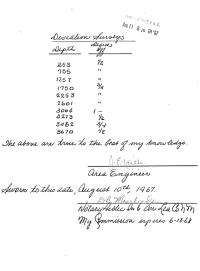 AUG 11 8 24 AM '67
Deviation Surveys
Depth Degrees Off
253 1/2
705 "
1257 "
1750 3/4
2253 "
2601 "
3064 1 -
3273 1/2
3482 3/4
3670 1/2
The above are true to the best of my knowledge.
Area Engineer
Sworn to this date, August 10th, 1967.
Notary Public In & For Lea Co N M
My Commission expires 6-10-68